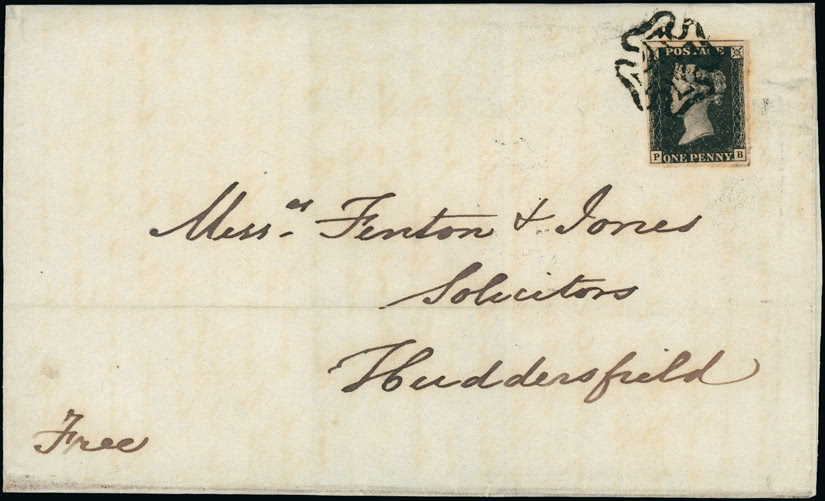 POSTAGE
P ONE PENNY B
Mess.rs Fenton & Jones
Solicitors
Huddersfield
Free